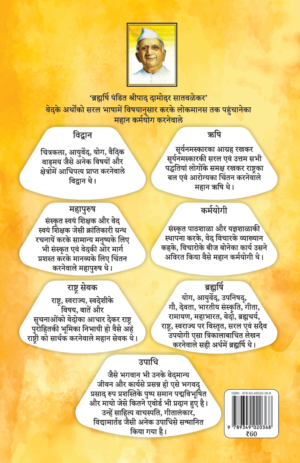 'ब्रह्मर्षि पंडित श्रीपाद दामोदर सातवळेकर'
वेदके अर्थोंको सरल भाषामें विषयानुसार करके लोकमानस तक पहुंचानेका
महान कर्मयोग करनेवाले
विद्वान
चित्रकला, आयुर्वेद, योग, वैदिक
वाङ्मय जैसे अनेक विषयों और
क्षेत्रोंमें आधिपत्य प्राप्त करनेवाले
विद्वान थे।
ऋषि
सूर्यनमस्कारका आग्रह रखकर
सूर्यनमस्कारकी सरल एवं उत्तम सभी
पद्धतियां लोगोंके समक्ष रखकर राष्ट्रका
बल एवं आरोग्यका चिंतन करनेवाले
महान ऋषि थे।
महापुरुष
संस्कृत स्वयं शिक्षक और वेद
स्वयं शिक्षक जैसी क्रांतिकारी ग्रन्थ
रचनायें करके सामान्य मनुष्यके लिए
भी संस्कृत एवं वेदकी ओर मार्ग
प्रशस्त करके मानव्यके लिए चिंतन
करनेवाले महापुरुष थे।
कर्मयोगी
संस्कृत पाठशाळा और यज्ञशाळाकी
स्थापना करके, वेद विचारके व्याख्यान
कहके, विचारोंके बीज बोनेका कार्य उसने
अविरत किया वैसे महान कर्मयोगी थे।
राष्ट्र सेवक
राष्ट्र, स्वराज्य, स्वदेशीके
विषय, बातें और
सूचनाओंको वेदोंका आधार देकर राष्ट्र
पुरोहितकी भूमिका निभायी हो वैसे अहं
राष्ट्री को सार्थक करनेवाले महान सेवक थे।
ब्रह्मर्षि
योग, आयुर्वेद, उपनिषद्,
गौ, देवता, भारतीय संस्कृति, गीता,
रामायण, महाभारत, वेदों, ब्रह्मचर्य,
राष्ट्र, स्वराज्य पर विस्तृत, सरल एवं सदैव
उपयोगी एसा त्रिकालाबाधित लेखन
करनेवाले सही अर्थमें ब्रह्मर्षि थे।
उपाधि
जैसे भगवान भी उनके वेदमान्य
जीवन और कार्यसे प्रसन्न हो एसे भगवद्
प्रसाद रुप प्रशस्तिके पुष्प समान पद्मविभूषित
और मायो जेसे कितने एवोर्ड भी प्रदान हुए है।
उन्हें साहित्य वाचस्पति, गीतालंकार,
विद्यामार्तंड जैसी अनेक उपाधिसे सम्मानित
किया गया है।
9 789349 020368
₹60